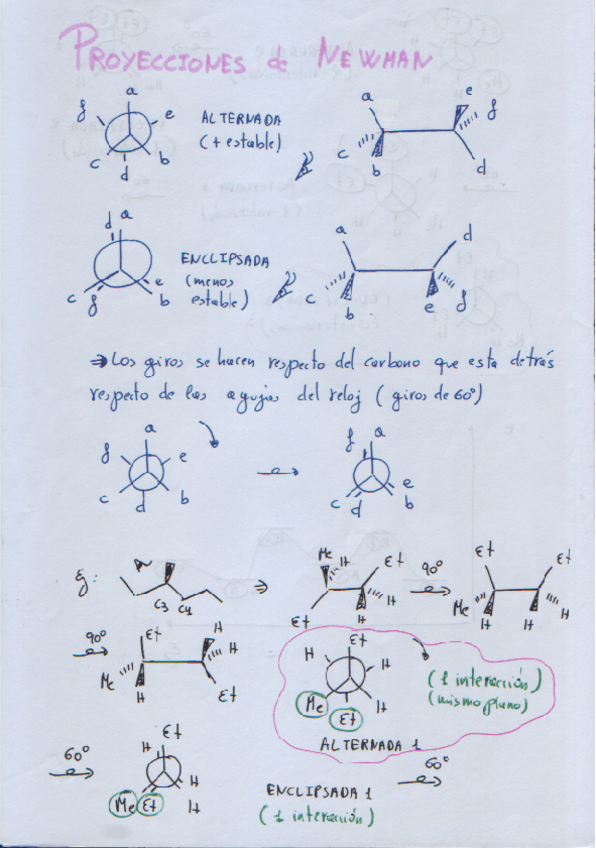 PROYECCIONES de NEWMAN
a
f e
c b
d
ALTERNADA
(+ estable)
a e f
c b d
d a
c f e b
ENCLIPSADA
(menos
estable)
a d
c b e f
⇒ Los giros se hacen respecto del carbono que esta detrás
respecto de las agujas del reloj (giros de 60°)
a
f e
c d b
f a
e
c d b
Ej:
C3 C4
Me H Et
Et H H
90°
Et Et
Me H H H
90°
Et H H
Me H Et
Et
H H
Me Et H
(1 interacción)
(mismo plano)
ALTERNADA 1
60°
Et
H
H
Me Et H
ENCLIPSADA 1
(1 interacción)
60°